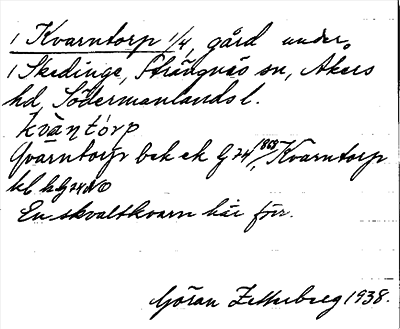 1 Kvarntorp 1/4, gård under
1 Skedinge, Strängnäs sn, Åkers
hd, Södermanlands l.
kvàntórp
Qvarntorp bek ek G 74 1868, Kvarntorp
hl
En skvaltkvarn här förr.
Göran Zetterberg 1938.